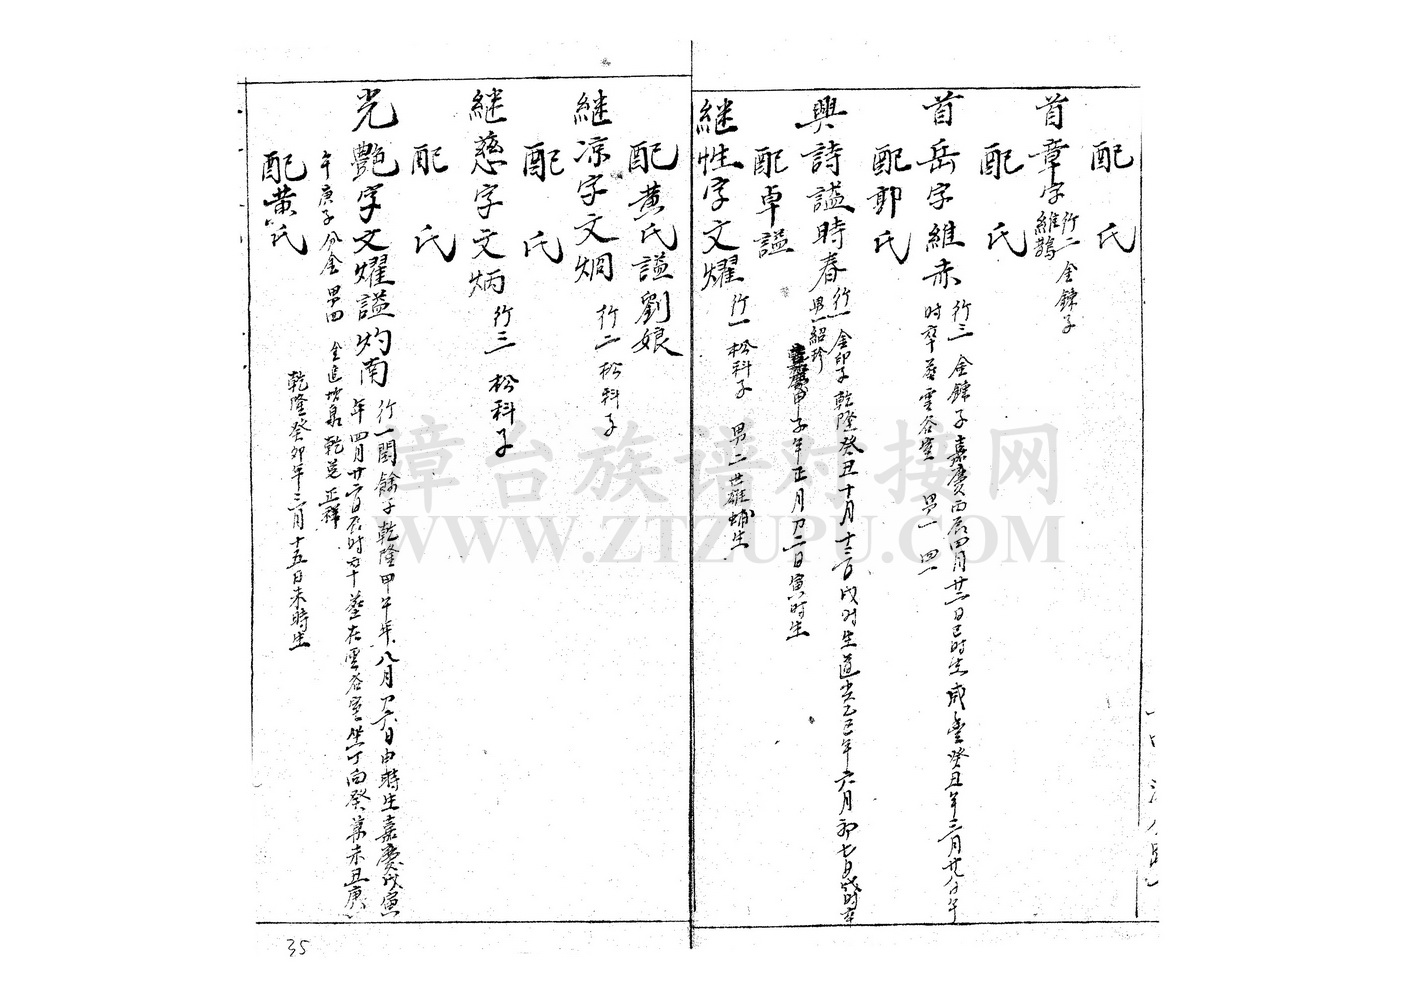 配 氏
首章字維鵲 行二 金鍊子
配 氏
首岳字維赤 行三 金鍊子嘉慶丙辰四月廿三日巳时生咸豊癸丑年三月廿八日午
时卒葬雲谷室 男一
配郭氏
興詩謚時春 行一 金印子乾隆癸丑十月十三日戌时生道光乙巳年六月初七日戌时卒
男一紹珍
配卓謚 甲子年正月初二日寅时生
継性字文燿 行一松科子 男二世雄 生
配黄氏謚劉娘
継凉字文炯 行二松科子
配 氏
継慈字文炳 行三松科子
配 氏
光艷字文燿謚灼南 行一閏餘子乾隆甲午年八月初六日申時生嘉慶戊寅
年四月廿六日辰时卒葬在雲谷室坐丁向癸兼未丑庚
午庚子分金 男四 全進 泉乾 正祥
配黄氏 乾隆癸卯年三月十五日未時生
35
漳台族谱对接网
WWW.ZTZUPU.COM